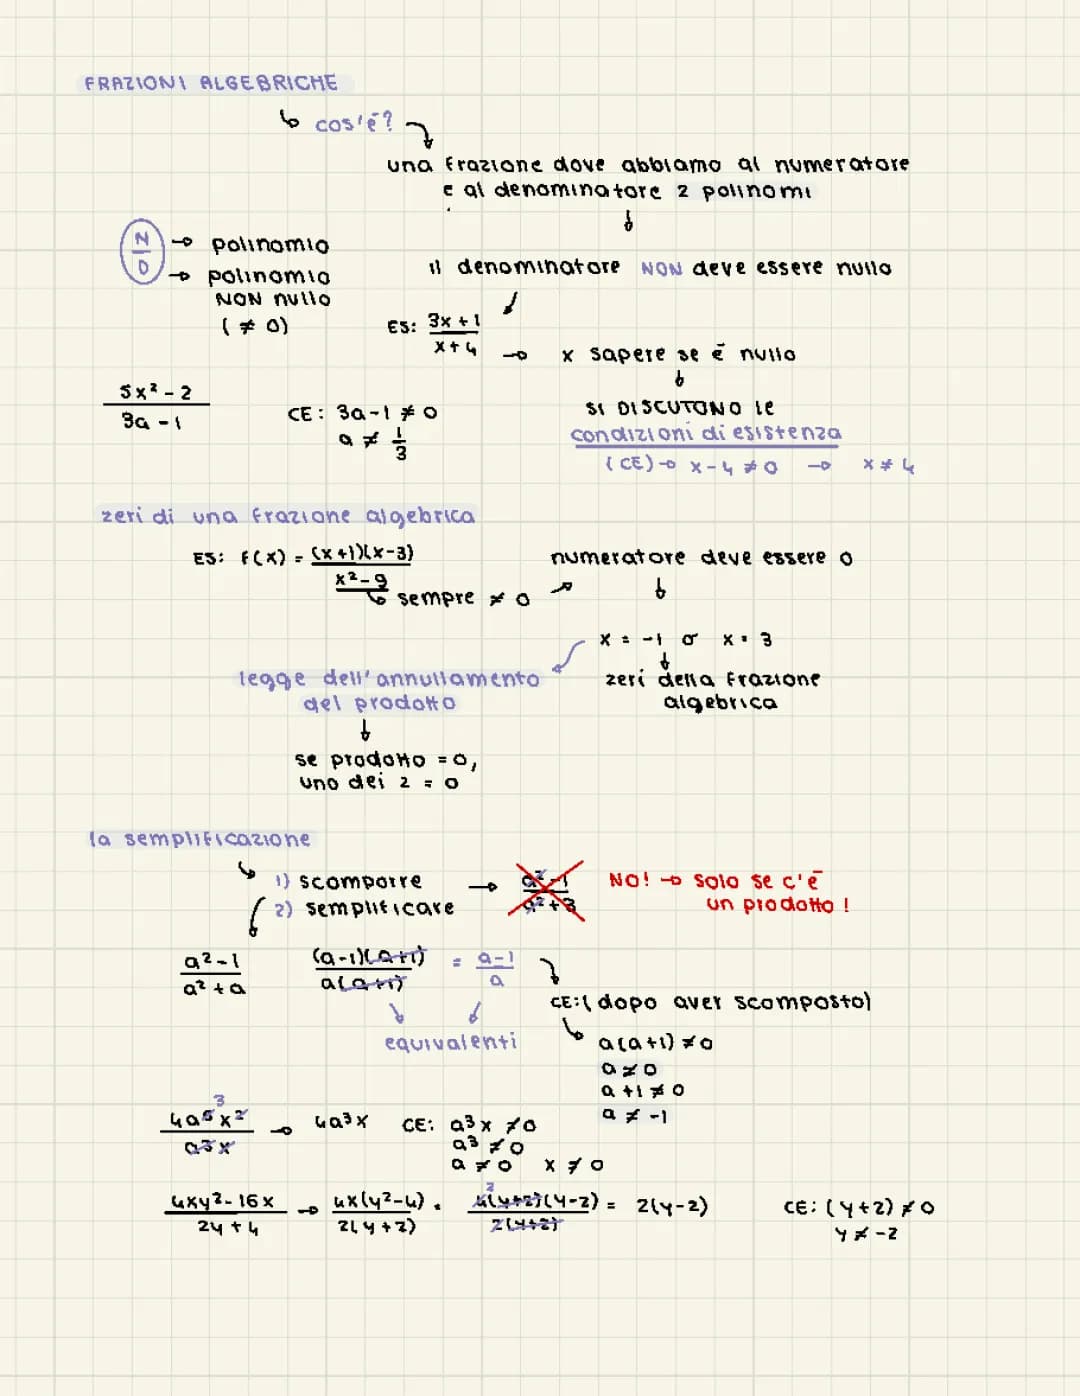 FRAZIONI ALGEBRICHE
↳ cos'è?
una frazione dove abbiamo al numeratore
e al denominatore 2 polinomi
N/D → polinomio
→ polinomio
NON nullo
(≠ 0)
il denominatore NON deve essere nullo
ES: (3x+1)/(x+4) → x sapere se è nullo
SI DISCUTONO le
condizioni di esistenza
(CE) → x-4 ≠ 0 → x ≠ 4
(5x²-2)/(3a-1) CE: 3a-1 ≠ 0
a ≠ 1/3
zeri di una frazione algebrica
ES: F(x) = (x+1)(x-3)/(x²-9)
↳ sempre ≠ 0
numeratore deve essere 0
x = -1 o x = 3
zeri della frazione
algebrica
legge dell'annullamento
del prodotto
se prodotto = 0,
uno dei 2 = 0
la semplificazione
1) scomporre
2) semplificare
→ (a²-1)/(a²+3) NO! → solo se c'è
un prodotto!
(a²-1)/(a²+a) (a-1)(a+1)/a(a+1) = (a-1)/a
equivalenti
CE: (dopo aver scomposto)
a(a+1) ≠ 0
a ≠ 0
a+1 ≠ 0
a ≠ -1
3
4a⁵x²/a³x → 4a³x CE: a³x ≠ 0
a³ ≠ 0
a ≠ 0 x ≠ 0
(4xy²-16x)/(2y+4) → 4x(y²-4)/2(y+2) = 2 4(y+2)(y-2)/2(y+2) = 2(y-2) CE: (y+2) ≠ 0
y ≠ -2